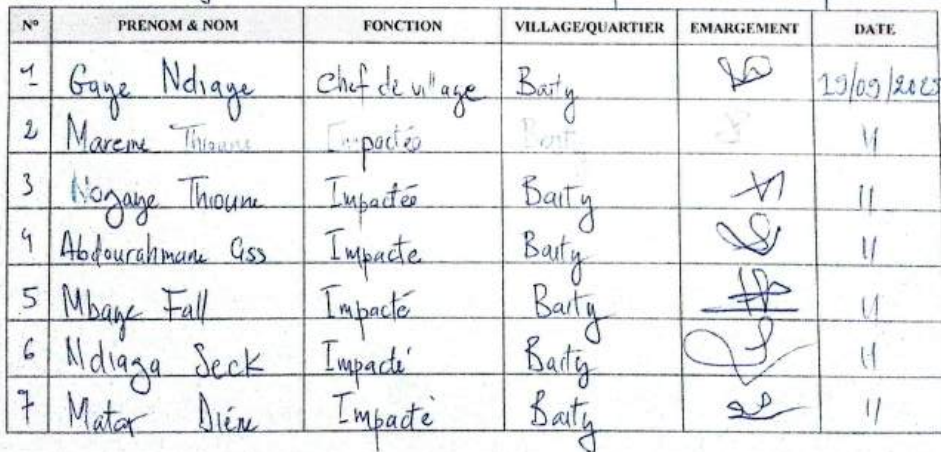 N° PRENOM & NOM FONCTION VILLAGE/QUARTIER EMARGEMENT DATE
1 Gaye Ndiaye Chef de village Baity 19/09/2023
2 Mareme Thioune Impactée Baity 11
3 Nogaye Thioune Impactée Baity 11
4 Abdourahmane Gss Impacte Baity 11
5 Mbaye Fall Impacté Baity 11
6 Ndiaga Seck Impacté Baity 11
7 Matar Diéne Impacté Baity 11